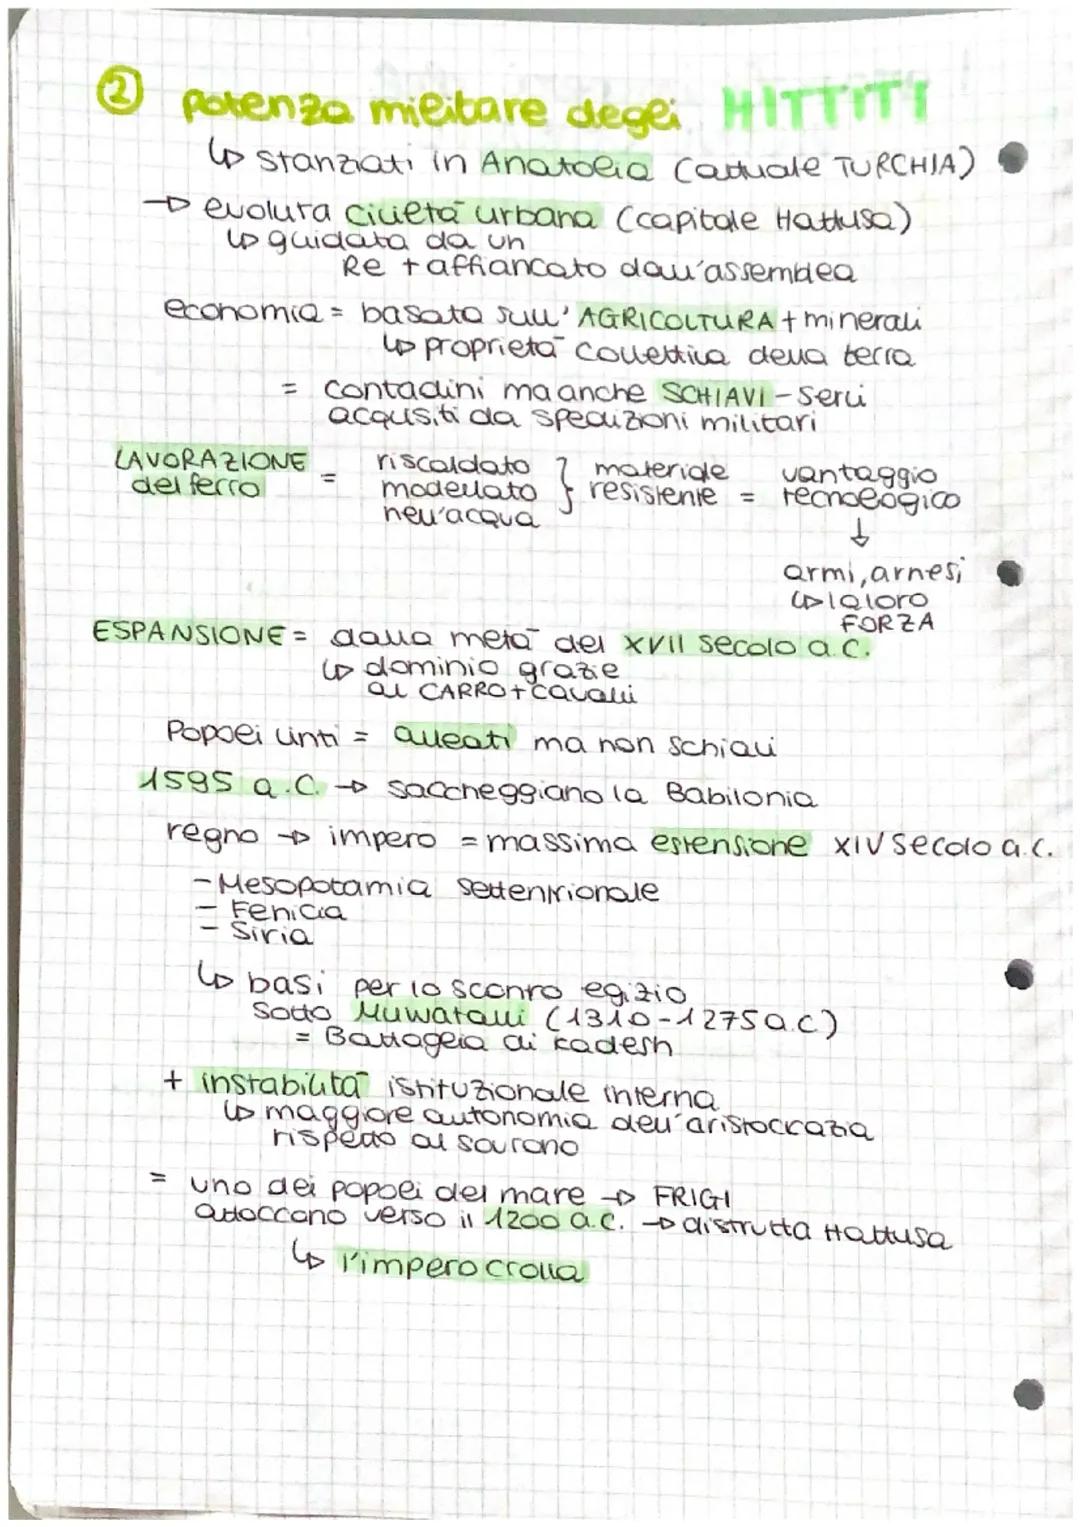 ② potenza militare degli HITTITI
↳ stanziati in Anatolia (attuale TURCHIA)
→ evoluta civiltà urbana (capitale Hattusa)
↳ guidata da un
Re + affiancato dall'assemblea
economia = basata sull'AGRICOLTURA + minerali
↳ proprietà collettiva della terra
= contadini ma anche SCHIAVI - servi
acquisiti da spedizioni militari
LAVORAZIONE del ferro = riscaldato modellato nell'acqua } materiale resistente = vantaggio tecnologico
↓
armi, arnesi
↳ la loro
FORZA
ESPANSIONE = dalla metà del XVII secolo a.C.
↳ dominio grazie
al CARRO + cavalli
Popoli vinti = alleati ma non schiavi
1595 a.C. → saccheggiano la Babilonia
regno → impero = massima estensione XIV secolo a.C.
- Mesopotamia settentrionale
- Fenicia
- Siria
↳ basi per lo sconro egizio
Sotto Muwatalli (1310-1275 a.C)
= Battaglia di Kadesh
+ instabilità istituzionale interna
↳ maggiore autonomia dell'aristocrazia
rispetto al sovrano
= uno dei popoli del mare → FRIGI
attaccano verso il 1200 a.C. → distrutta Hattusa
↳ l'impero crolla